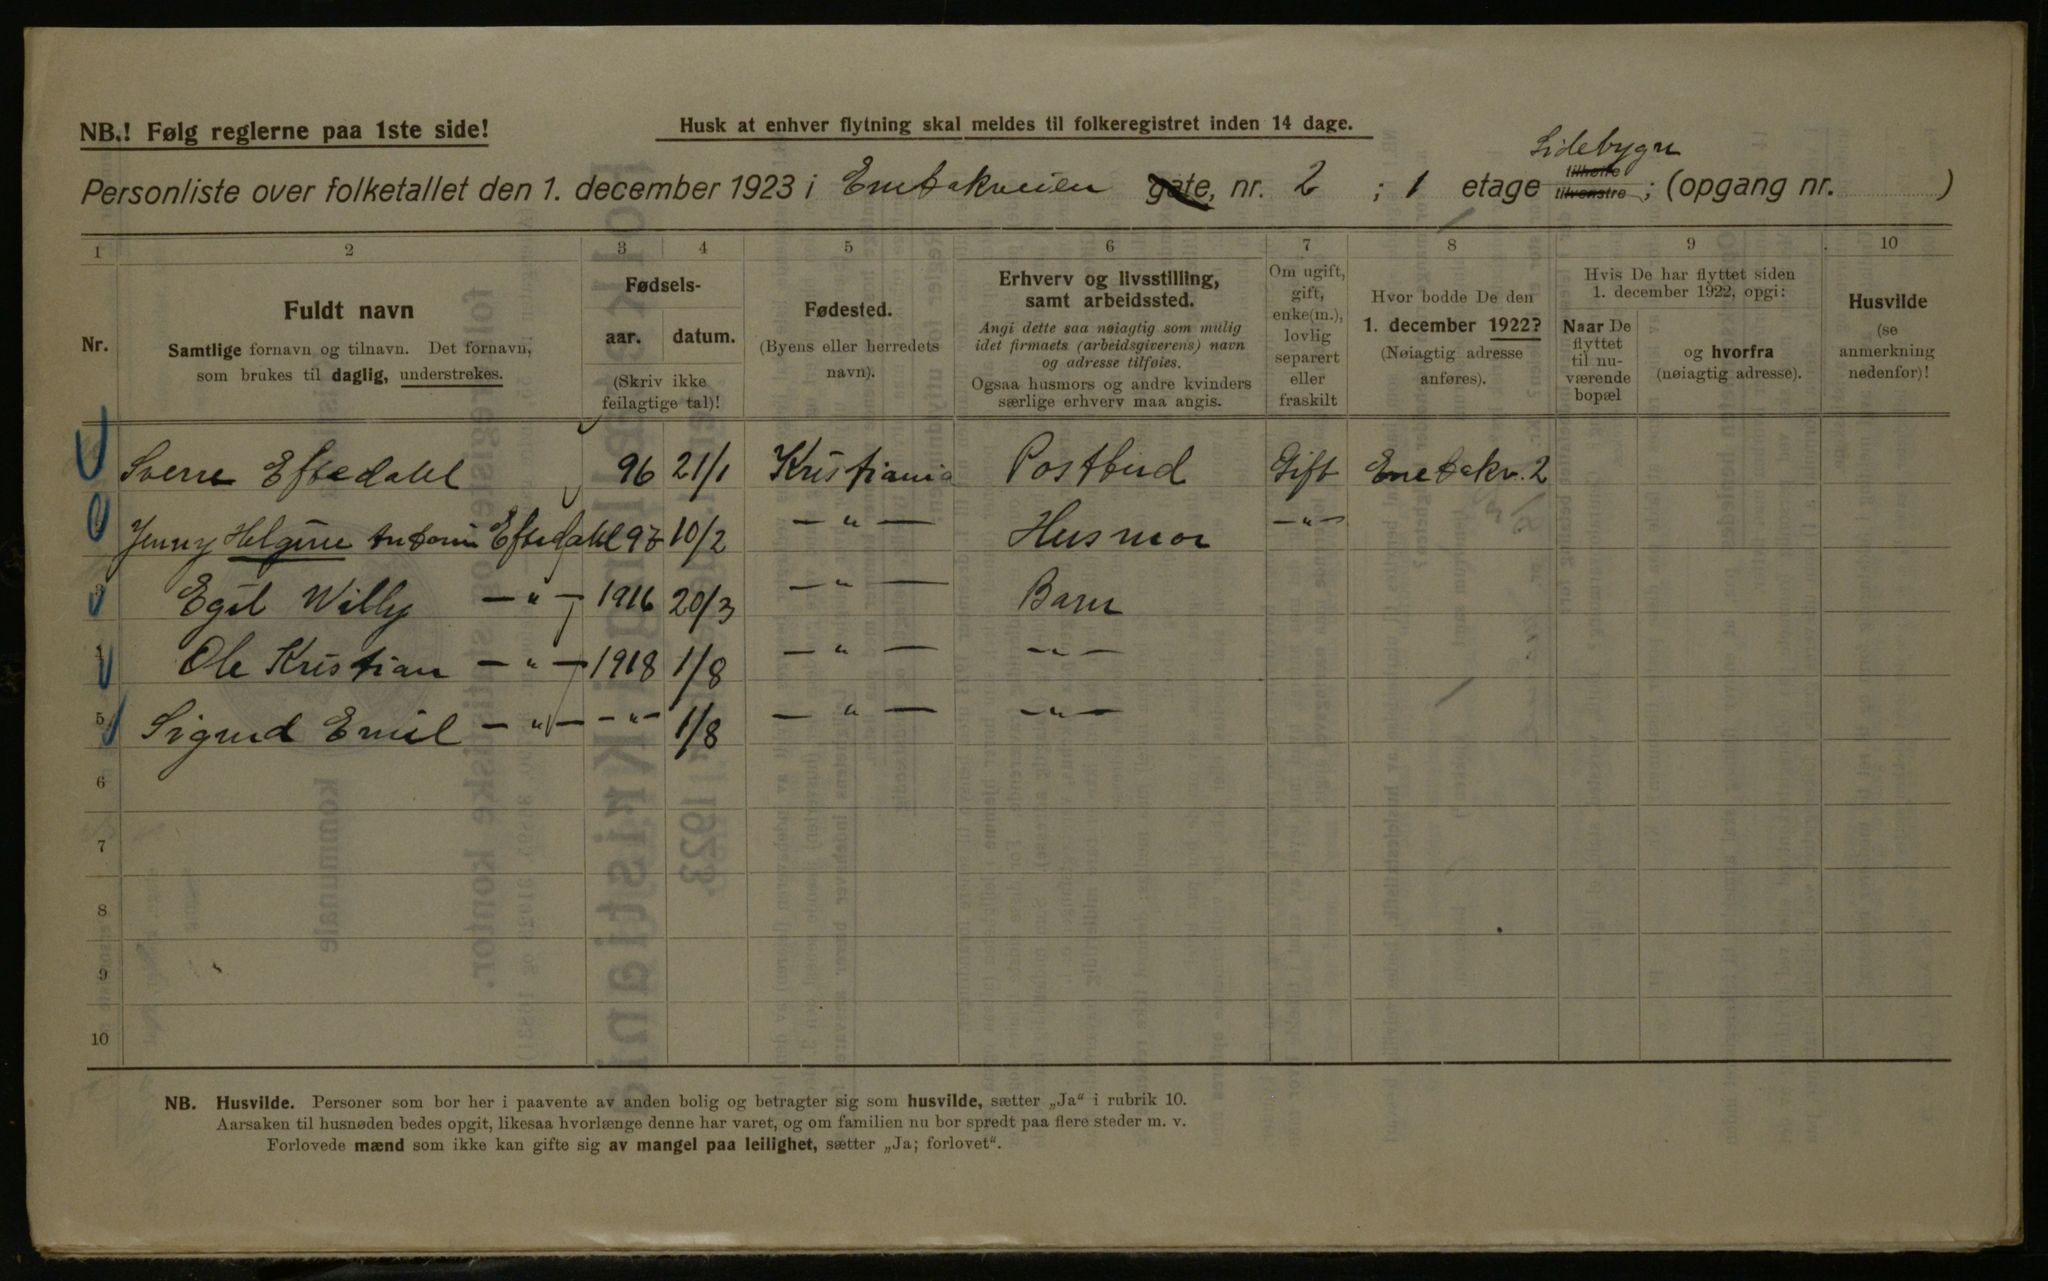 NB.! Følg reglerne paa 1ste side!
Husk at enhver flytning skal meldes til folkeregistret inden 14 dage.
Sidebygn
Personliste over folketallet den 1. december 1923 i Enebakveien gate, nr. 2 ; 1 etage tilhøire tilvenstre ; (opgang nr. )
1 2 3 4 5 6 7 8 9 10
Nr.
Fuldt navn
Samtlige fornavn og tilnavn. Det fornavn,
som brukes til daglig, understrekes.
Fødsels-
aar. datum.
(Skriv ikke
feilagtige tal)!
Fødested.
(Byens eller herredets
navn).
Erhverv og livsstilling,
samt arbeidssted.
Angi dette saa nøiagtig som mulig
idet firmaets (arbeidsgiverens) navn
og adresse tilføies.
Ogsaa husmors og andre kvinders
særlige erhverv maa angis.
Om ugift,
gift,
enke(m.),
lovlig
separert
eller
fraskilt
Hvor bodde De den
1. december 1922?
(Nøiagtig adresse
anføres).
Hvis De har flyttet siden
1. december 1922, opgi:
Naar De
flyttet
til nu-
værende
bopæl
og hvorfra
(nøiagtig adresse).
Husvilde
(se
anmerkning
nedenfor)!
Sverre Eftedahl 96 21/1 Kristiania Postbud Gift Enebakv. 2
Jenny Helgine Antonie Eftedahl 10/2 — " — Husmor — " —
3 Egil Willy — " — 1916 20/3 — " — Barn
4 Ole Kristian — " — 1918 1/8 — " — — " —
5 Sigurd Emil — " — — " — 1/8 — " — — " —
6
7
8
9
10
NB. Husvilde. Personer som bor her i paavente av anden bolig og betragter sig som husvilde, sætter „Ja“ i rubrik 10.
Aarsaken til husnøden bedes opgit, likesaa hvorlænge denne har varet, og om familien nu bor spredt paa flere steder m. v.
Forlovede mænd som ikke kan gifte sig av mangel paa leilighet, sætter „Ja; forlovet“.